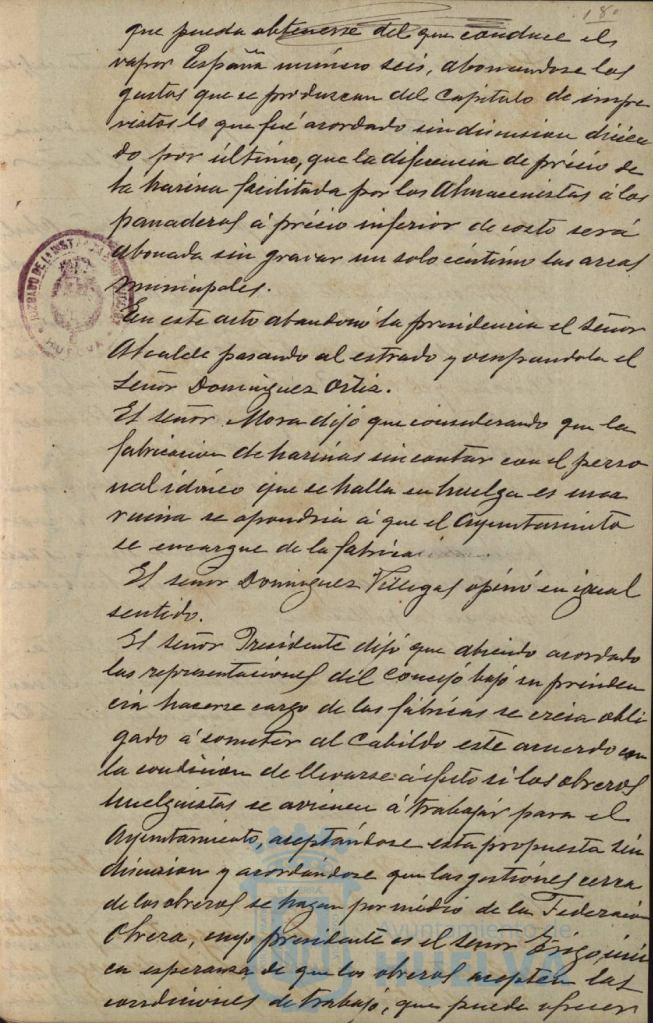 180
que pueda obtenerse del que conduce el
vapor España número seis, abonandose los
gastos que se produzcan del capitulo de impre
vistos lo que fué acordado sin discusion dicien
do por último, que la diferencia de précio de
la harina facilitada por los Almacenistas á los
panaderos á précio inferior de costo será
abonada sin gravar un solo céntimo las arcas
municipales.
En este acto abandonó la presidencia el señor
Alcalde pasando al estrado y ocupandola el
Señor Dominguez Ortiz.
El señor Mora dijó que considerando que la
fabricacion de harinas sin contar con el perso
nal idóneo que se halla en huelga es una
ruina se opondria á que el Ayuntamiento
se encargue de la fábrica.
El señor Dominguez Villegas opinó en igual
sentido.
El señor Presidente dijó que abiendo acordado
las representaciones del Concejó bajó su presiden
cia hacerse cargo de las fábricas se creia obli
gado á someter al Cabildo este acuerdo con
la condicion de llevarse á efecto si los obreros
huelguistas se avienen á trabajar para el
Ayuntamiento, aceptándose esta propuesta sin
discusion y acordándose que las gestiones cerca
de los obreros se hagan por médio de la Federación
Obrera, cuyo presidente es el señor Trigo, úni
ca esperanza de que los obreros acepten las
condiciones de trabajó, que puede ofrecer
JUZGADO DE
HUELVA
Ayuntamiento de
HUELVA